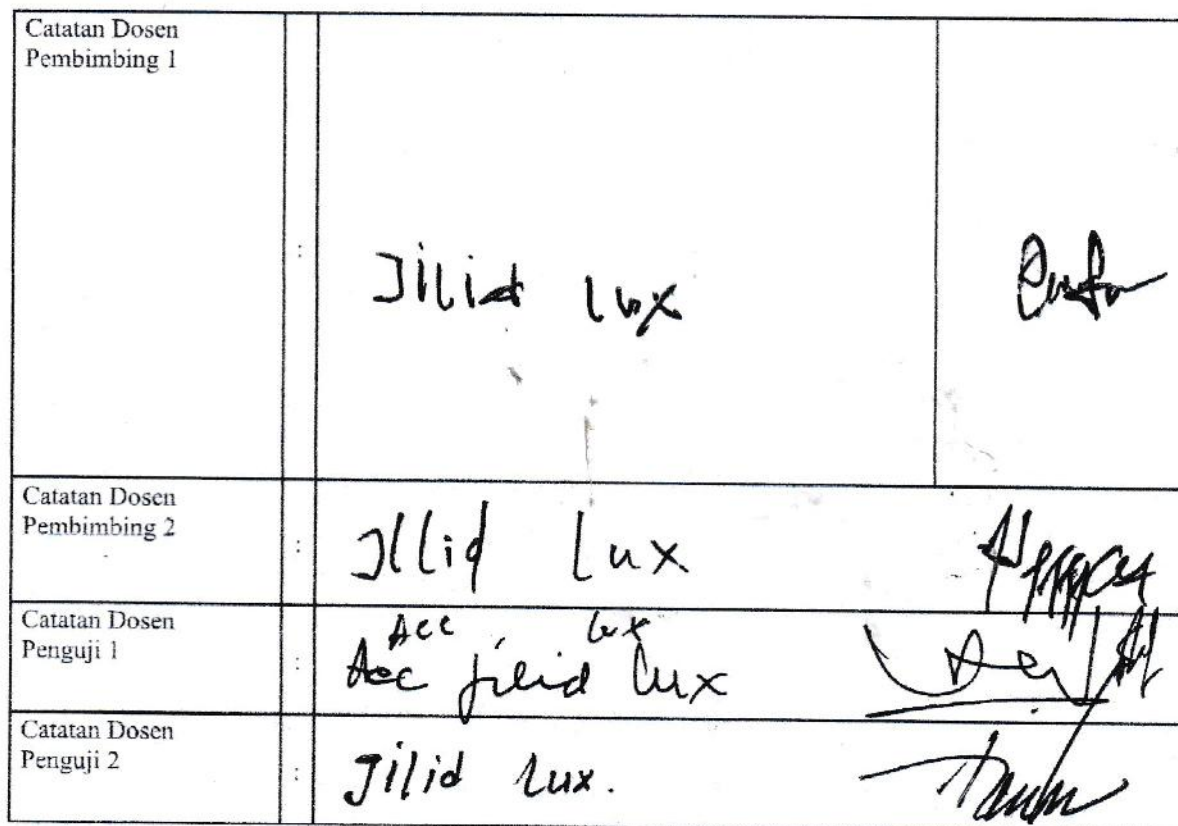 Catatan Dosen
Pembimbing 1
:
Jilid lux
Catatan Dosen
Pembimbing 2
:
Jilid lux
Catatan Dosen
Penguji 1
:
Acc lux
Acc jilid lux
Catatan Dosen
Penguji 2
:
Jilid lux.